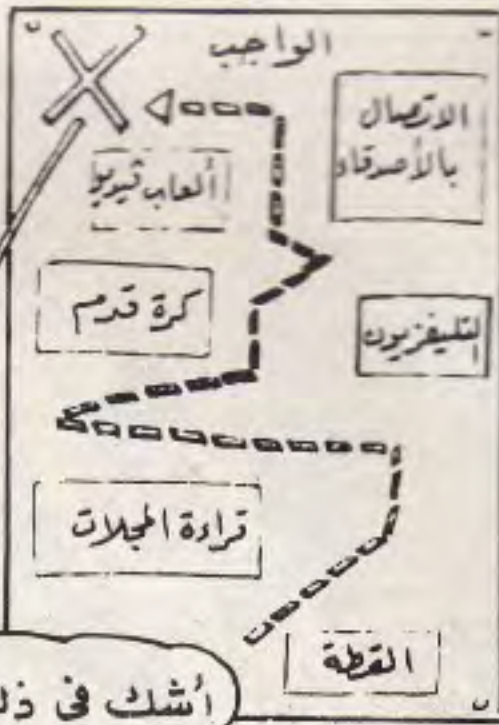 الواجب
الاتصال
بالأصدقاء
ألعاب ڤيديو
كرة قدم
التليفزيون
قراءة المجلات
القطة
أشك فى